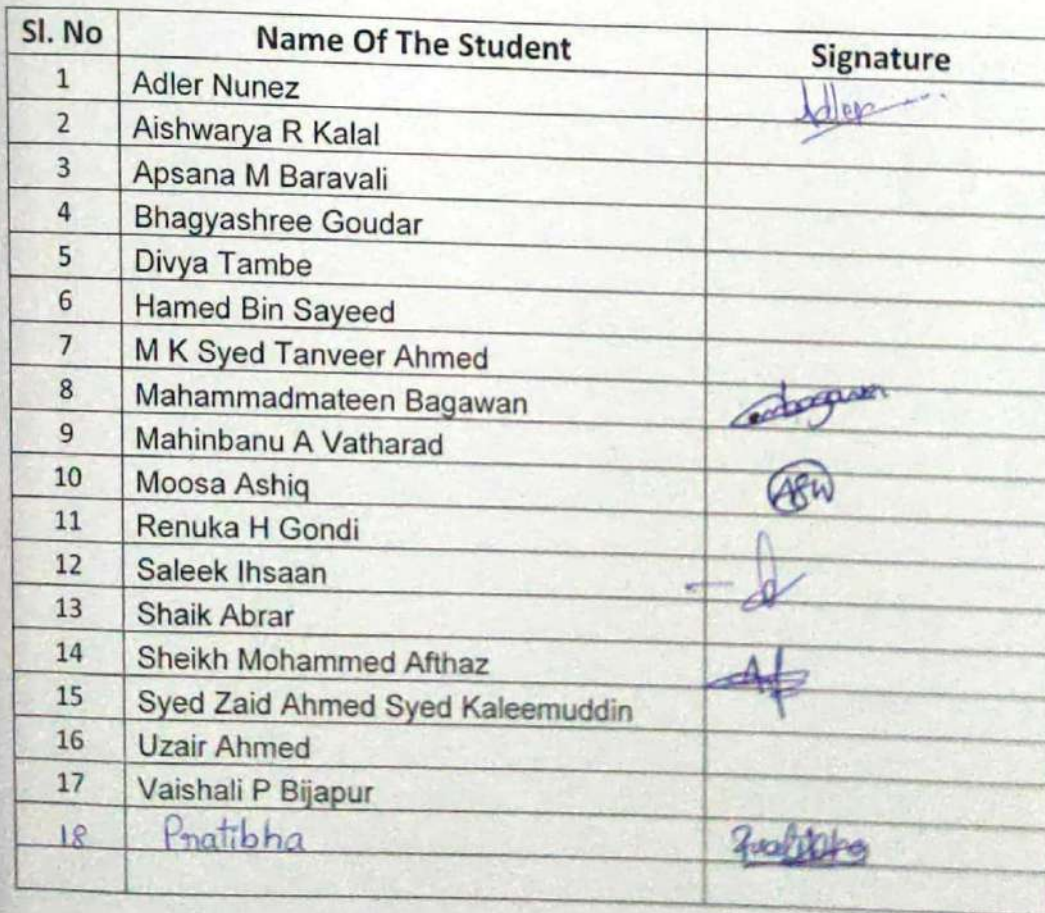 Sl. No Name Of The Student Signature
1 Adler Nunez Adler
2 Aishwarya R Kalal
3 Apsana M Baravali
4 Bhagyashree Goudar
5 Divya Tambe
6 Hamed Bin Sayeed
7 M K Syed Tanveer Ahmed
8 Mahammadmateen Bagawan
9 Mahinbanu A Vatharad
10 Moosa Ashiq
11 Renuka H Gondi
12 Saleek Ihsaan
13 Shaik Abrar
14 Sheikh Mohammed Afthaz
15 Syed Zaid Ahmed Syed Kaleemuddin
16 Uzair Ahmed
17 Vaishali P Bijapur
18 Pratibha